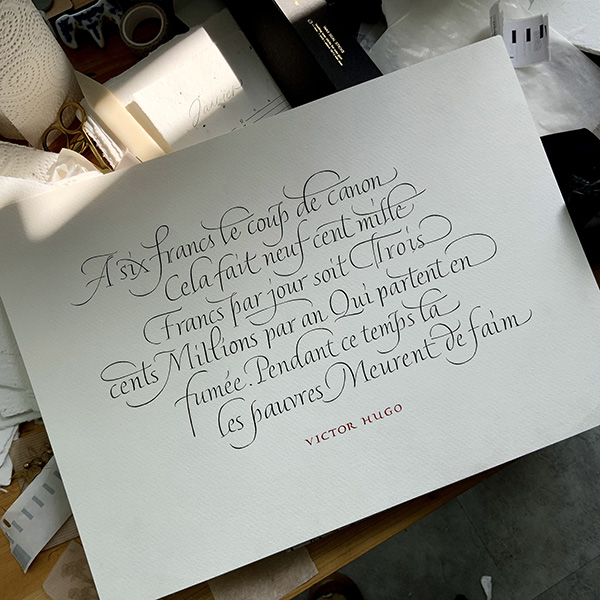 A six francs le coup de canon
Cela fait neuf cent mille
Francs par jour soit Trois
cents Millions par an Qui partent en
fumée. Pendant ce temps la
les pauvres Meurent de faim
VICTOR HUGO